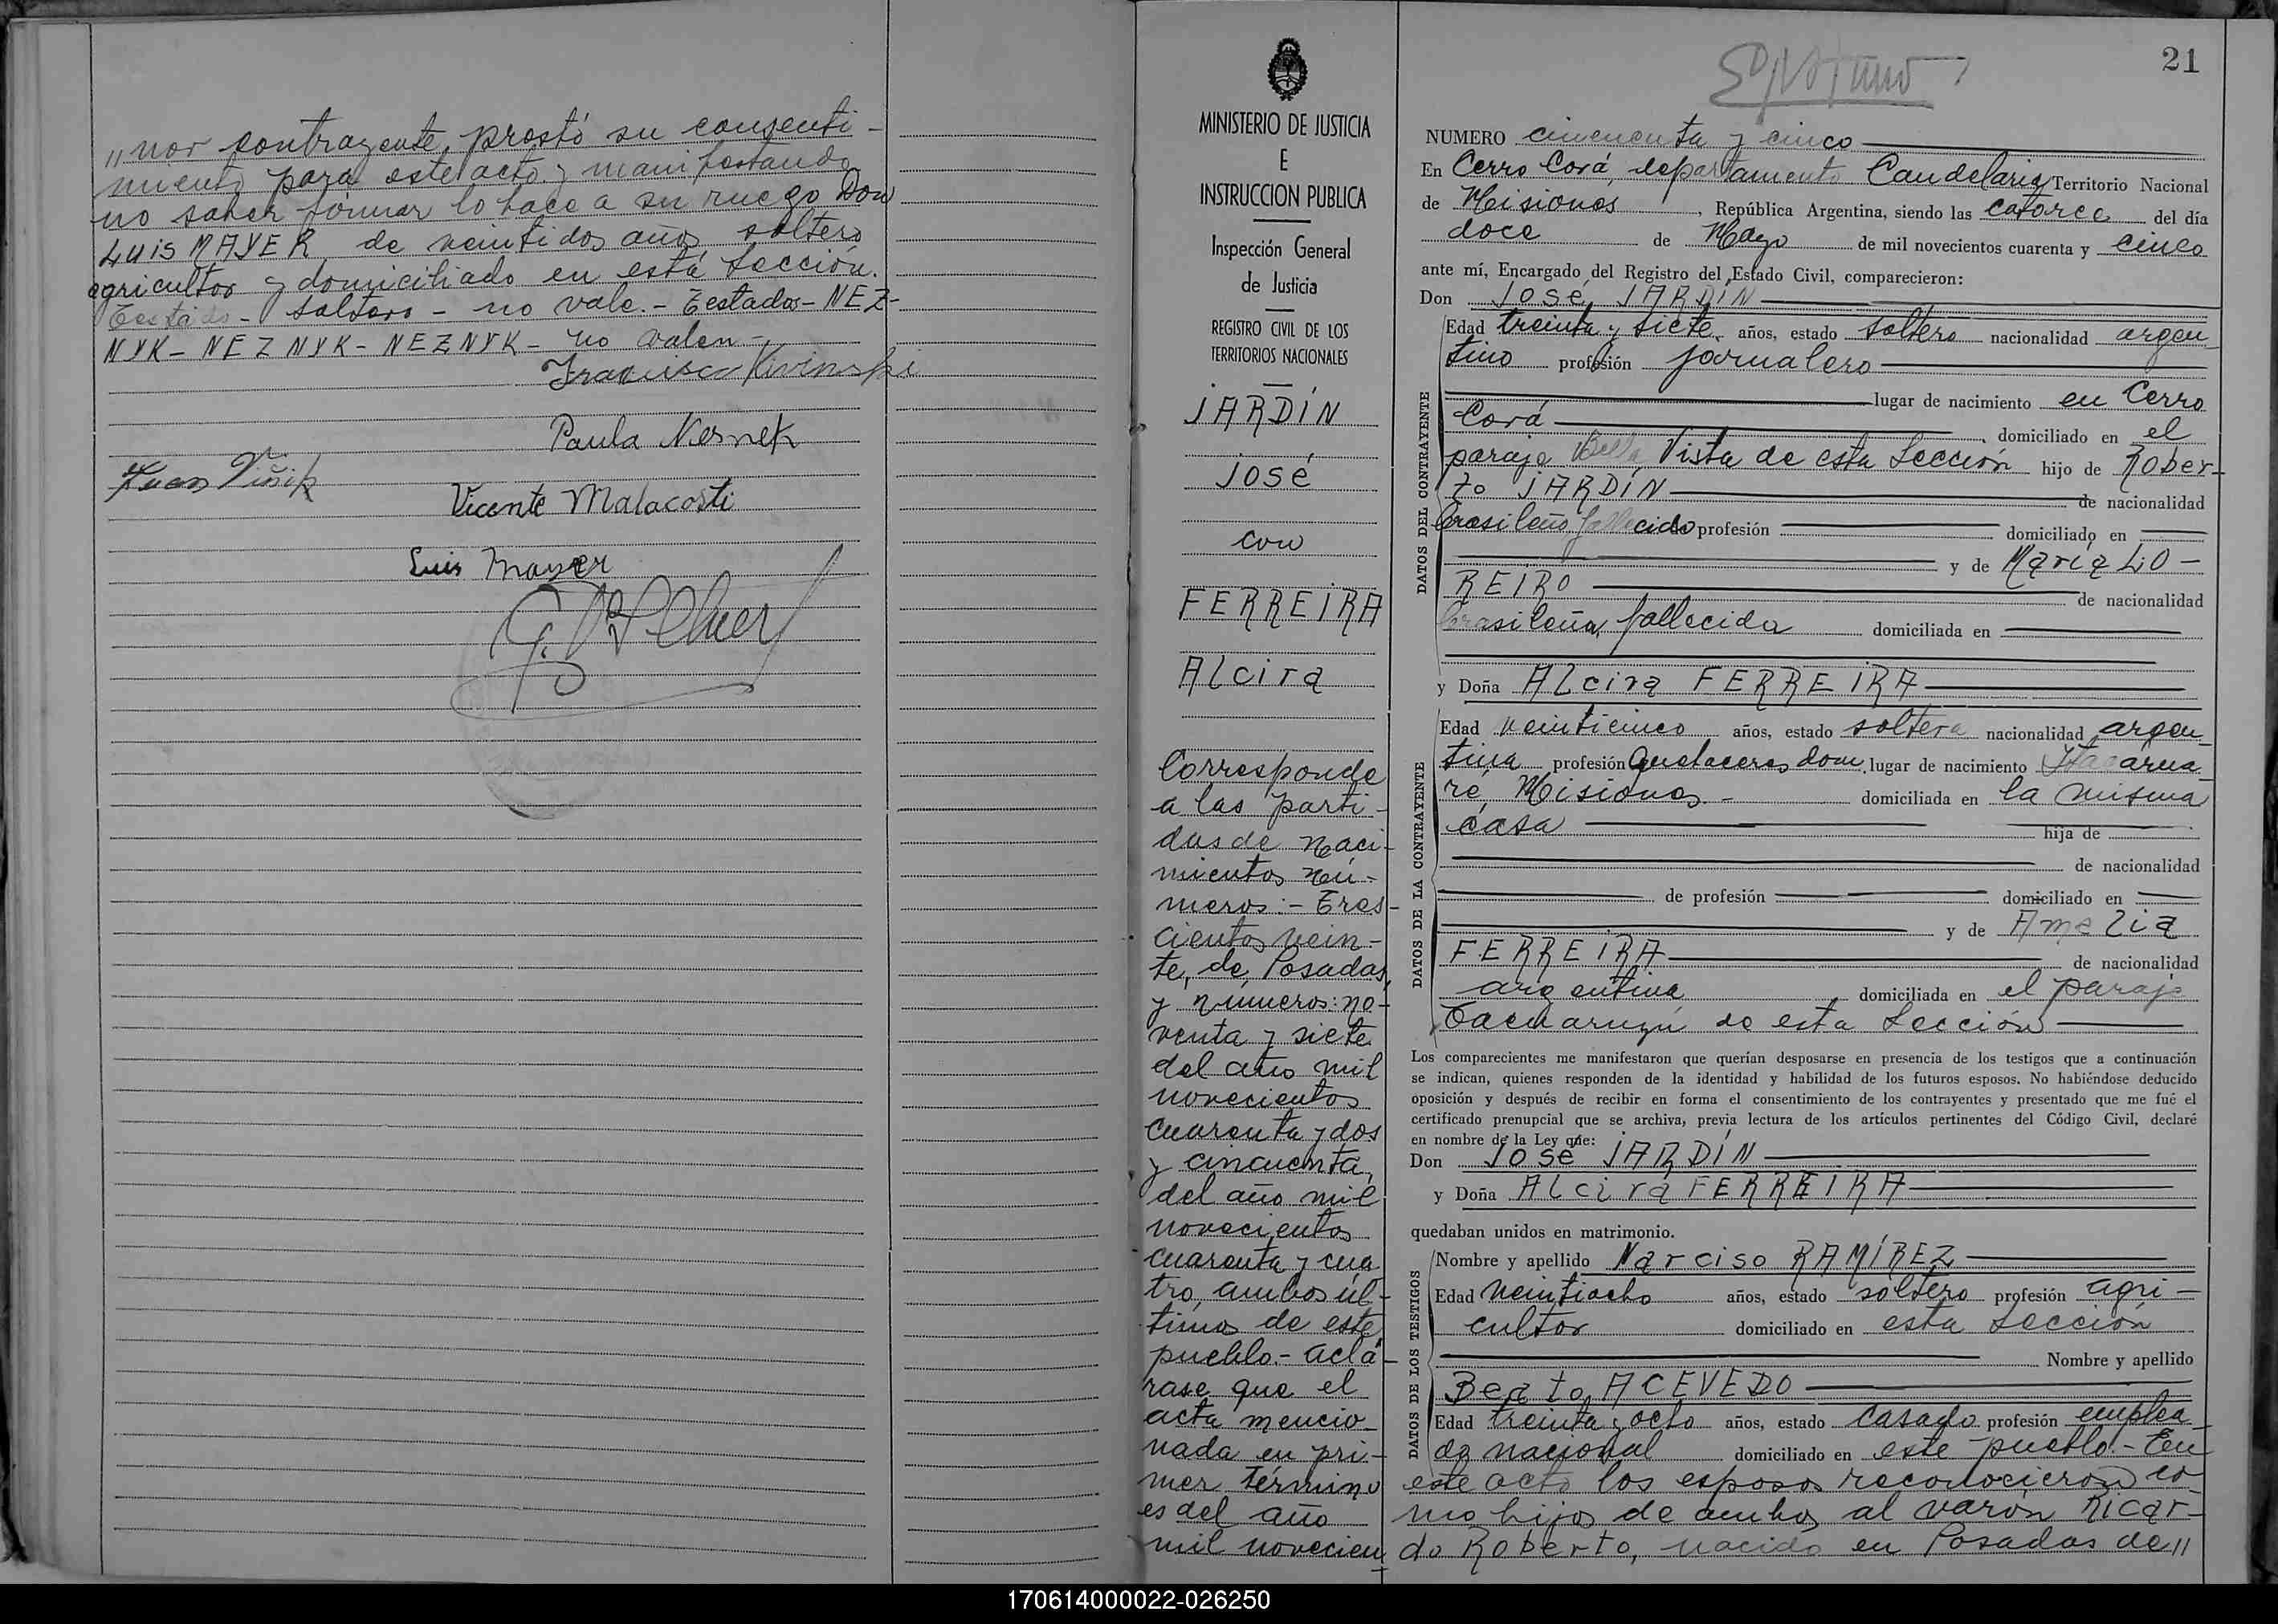 "nor contrayente, prestó su consenti-
miento para este acto y manifestando
no saber firmar lo hace a su ruego Don
LUIS MAYER de veintidos años soltero
agricultor y domiciliado en esta Sección.
Testado - soltero - no vale. - Testados - NEZ-
NYK - NEZNYK - NEZNYK - no valen -
Francisco Kivinski
Paula Nesnek
Juan Viñik
Vicente Malacosti
Luis Mayer
MINISTERIO DE JUSTICIA
E
INSTRUCCION PUBLICA
Inspección General
de Justicia
REGISTRO CIVIL DE LOS
TERRITORIOS NACIONALES
JARDÍN
JOSÉ
con
FERREIRA
Alcira
Corresponde
a las parti-
das de naci-
mientos nú-
meros: - Tres-
cientos vein-
te, de Posadas
y números: no-
venta y siete
del año mil
novecientos
cuarenta y dos
y cincuenta,
del año mil
novecientos
cuarenta y cua
tro, ambos úl-
timos de este
pueblo. - Aclá-
rase que el
acta mencio-
nada en pri-
mer término
es del año
mil novecien
21
NUMERO cincuenta y cinco
En Cerro Corá, departamento Candelaria Territorio Nacional
de Misiones, República Argentina, siendo las catorce del día
doce de Mayo de mil novecientos cuarenta y cinco
ante mí, Encargado del Registro del Estado Civil, comparecieron:
Don José JARDÍN
DATOS DEL CONTRAYENTE
Edad treinta y siete años, estado soltero nacionalidad argen-
tino profesión jornalero
lugar de nacimiento en Cerro
Corá, domiciliado en el
paraje Bella Vista de esta Sección hijo de Rober-
to JARDÍN de nacionalidad
brasileño fallecido profesión domiciliado en
y de María LO-
REIRO de nacionalidad
brasileña, fallecida domiciliada en
y Doña Alcira FERREIRA
DATOS DE LA CONTRAYENTE
Edad veinticinco años, estado soltera nacionalidad argen-
tina profesión quehaceres dom. lugar de nacimiento Itacarua-
ré, Misiones - domiciliada en la misma
casa hija de
de nacionalidad
de profesión domiciliado en
y de Amelia
FERREIRA de nacionalidad
argentina, domiciliada en el paraje
Tacuaruzú de esta Sección
Los comparecientes me manifestaron que querían desposarse en presencia de los testigos que a continuación
se indican, quienes responden de la identidad y habilidad de los futuros esposos. No habiéndose deducido
oposición y después de recibir en forma el consentimiento de los contrayentes y presentado que me fué el
certificado prenupcial que se archiva, previa lectura de los artículos pertinentes del Código Civil, declaré
en nombre de la Ley que:
Don José JARDÍN
y Doña Alcira FERREIRA
quedaban unidos en matrimonio.
DATOS DE LOS TESTIGOS
Nombre y apellido Narciso RAMÍREZ
Edad veintiocho años, estado soltero profesión agri-
cultor domiciliado en esta Sección
Nombre y apellido
Beato ACEVEDO
Edad treinta y ocho años, estado casado profesión emplea-
do nacional domiciliado en este pueblo. - En
este acto los esposos reconocieron co-
mo hijos de ambos al varón Ricar-
do Roberto, nacido en Posadas de"
170614000022-026250